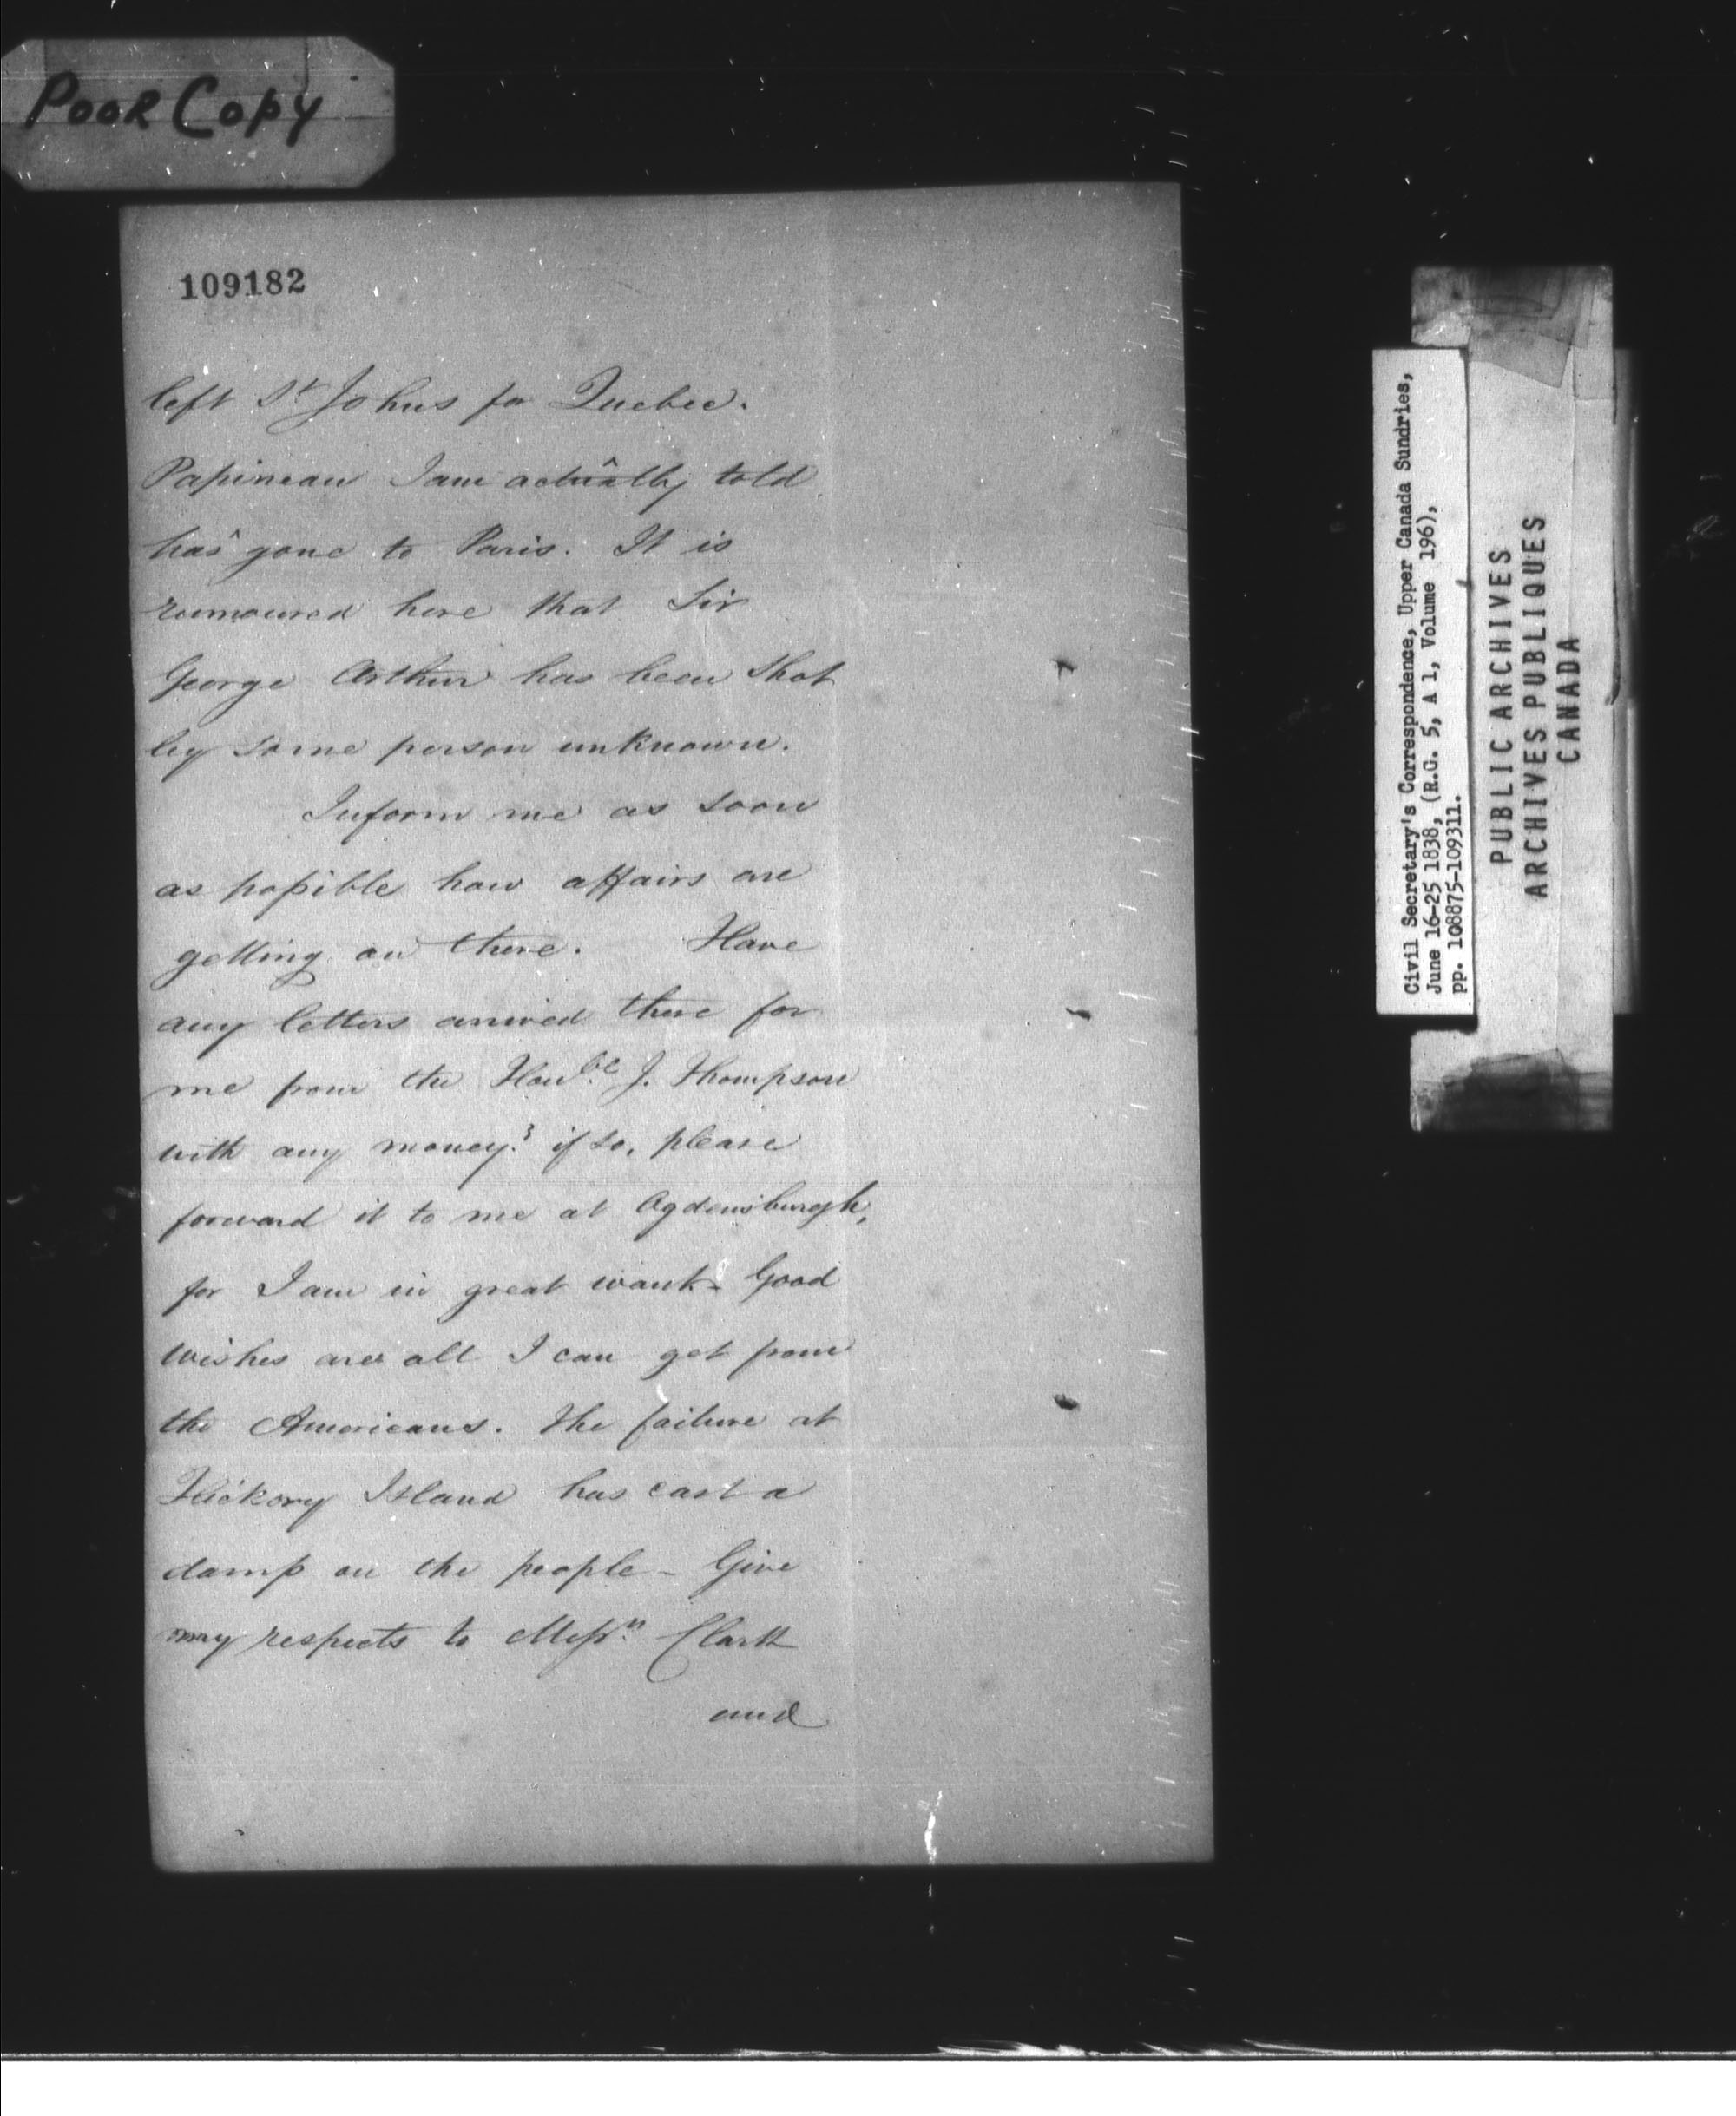 Poor Copy
109182
left St Johns for Quebec.
Papineau I am actually told
has gone to Paris. It is
rumoured here that Sir
George Arthur has been shot
by some person unknown.
Inform me as soon
as possible how affairs are
getting on there. Have
any letters arrived there for
me from the Honble. J. Thompson
with any money? if so, please
forward it to me at Ogdensburgh,
for I am in great want - Good
wishes are all I can get from
the Americans. The failure at
Hickory Island has cast a
damp on the people - Give
my respects to Messrs. Clark
and
Civil Secretary's Correspondence, Upper Canada Sundries,
June 16-25 1838, (R.G. 5, A 1, Volume 196),
pp. 108875-109311.
PUBLIC ARCHIVES
ARCHIVES PUBLIQUES
CANADA